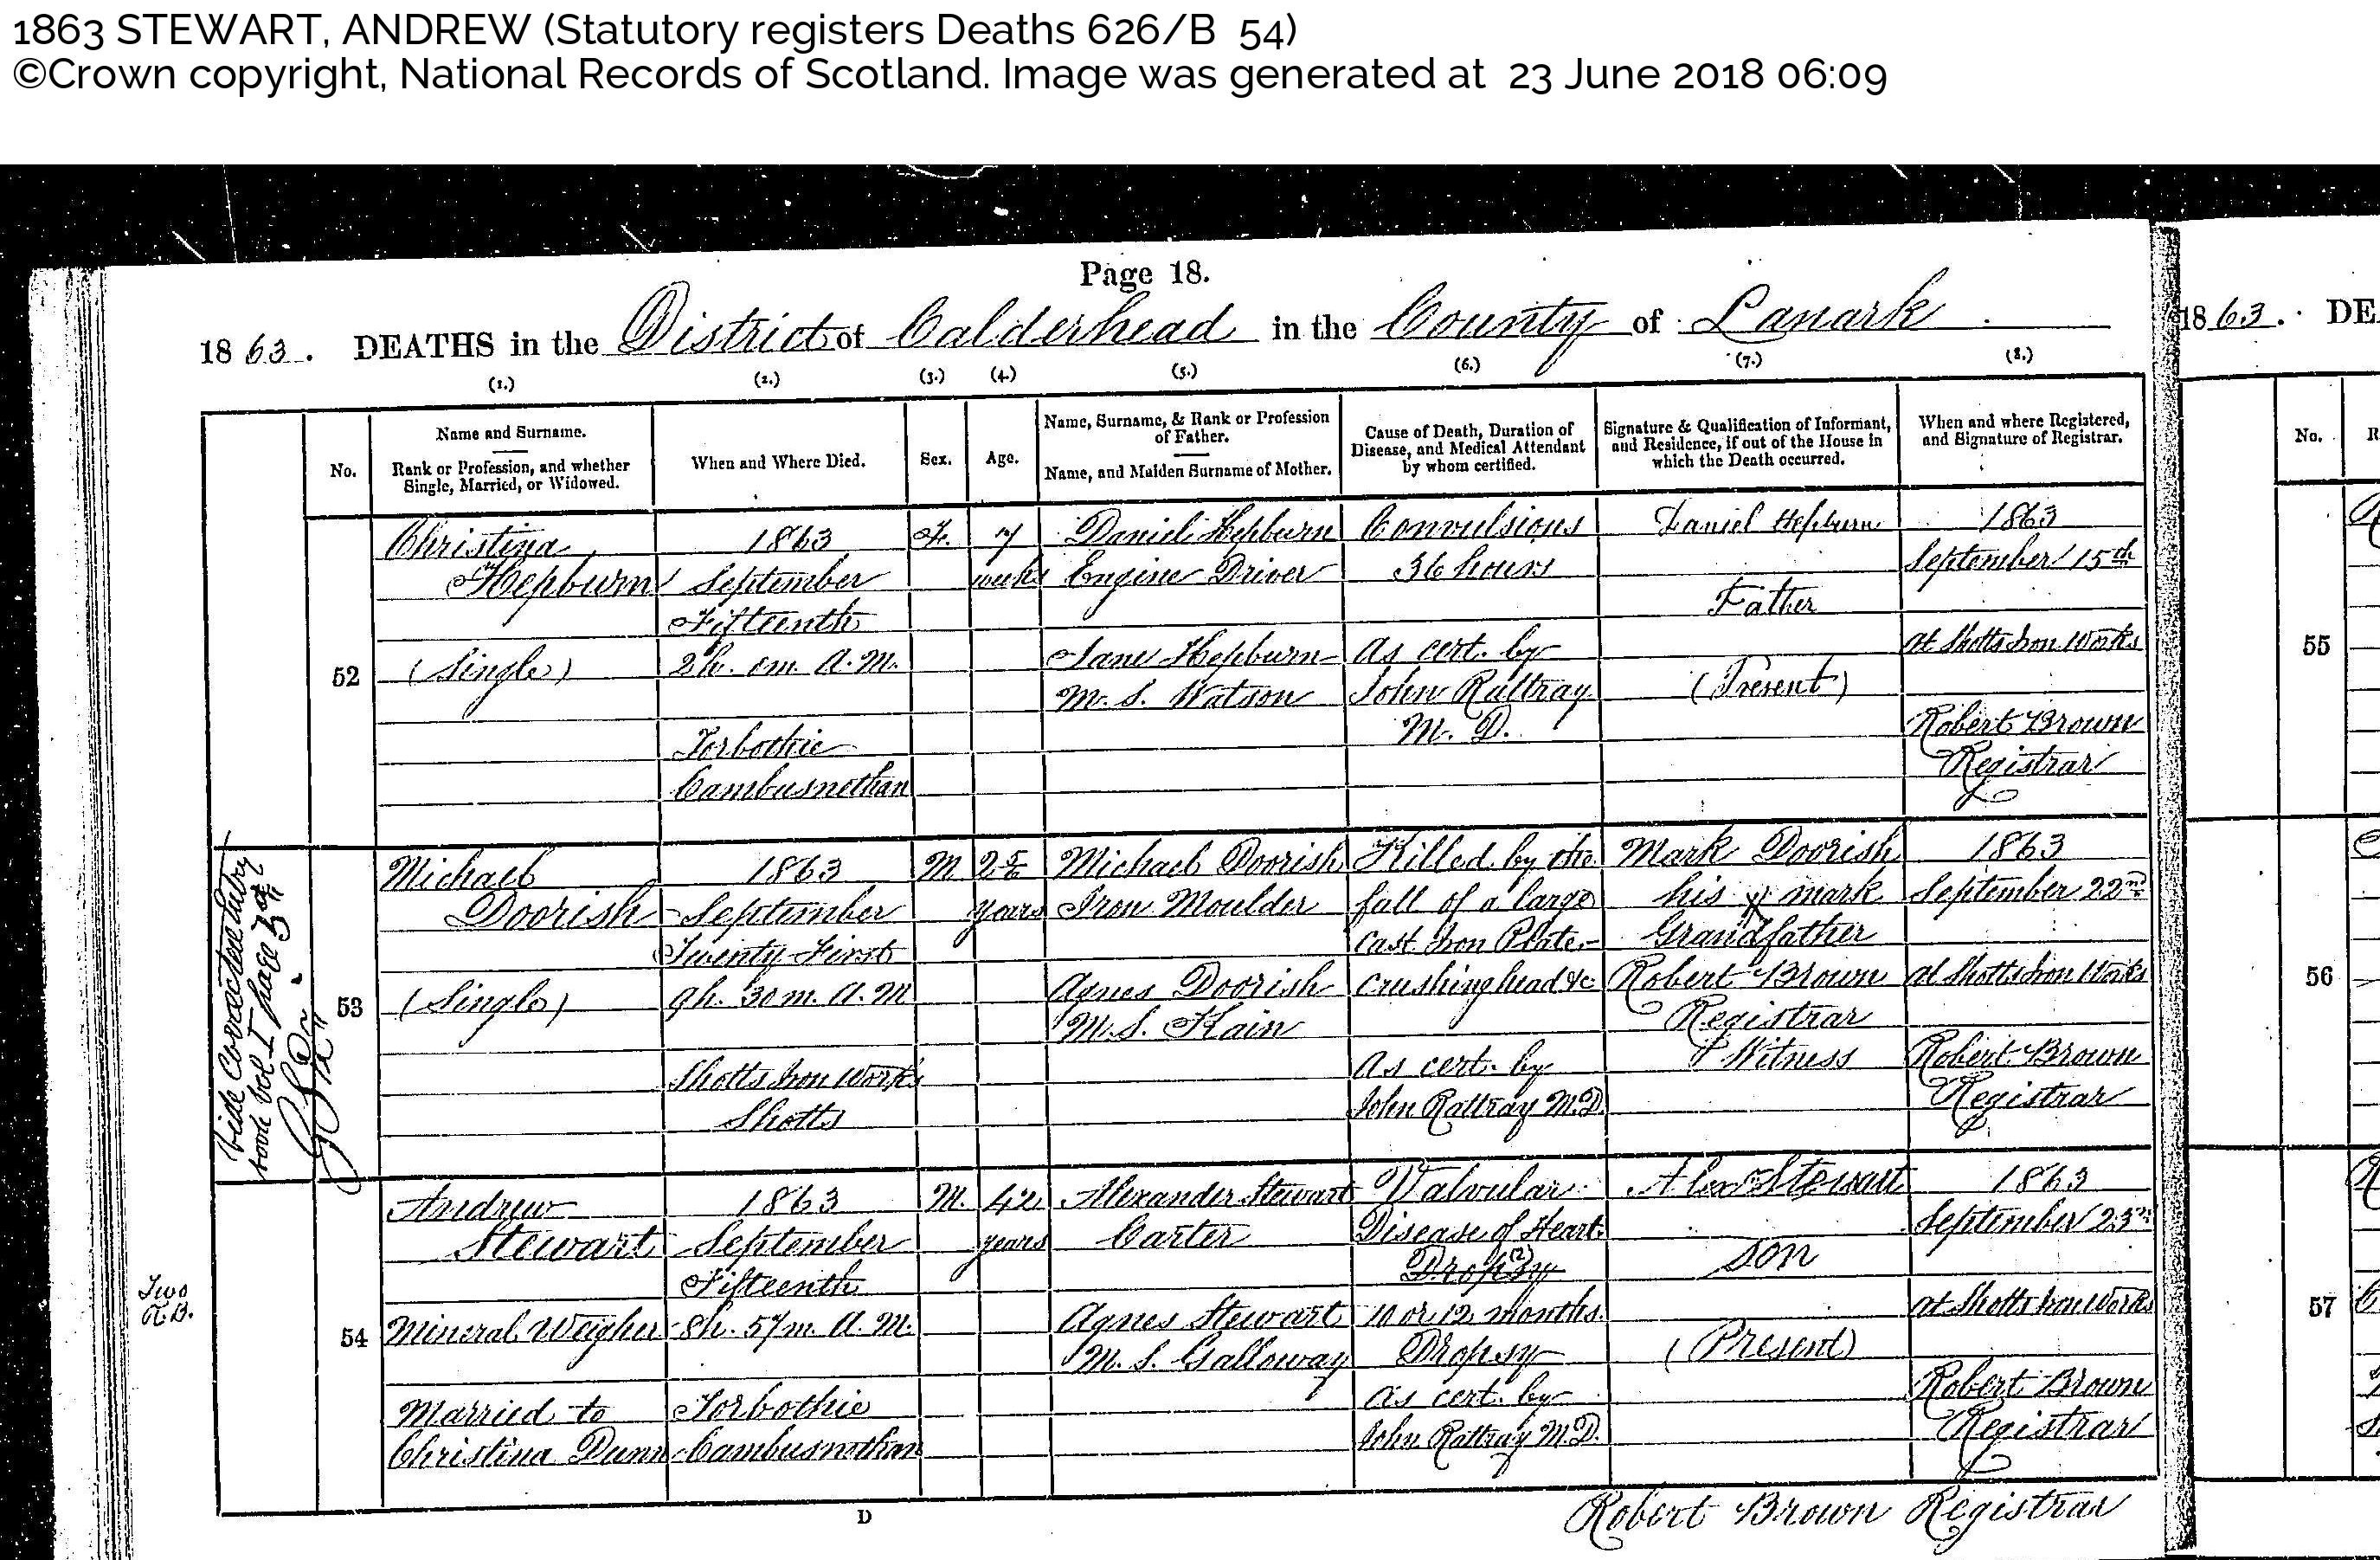 1863 STEWART, ANDREW (Statutory registers Deaths 626/B 54)
©Crown copyright, National Records of Scotland. Image was generated at 23 June 2018 06:09
Page 18.
1863. DEATHS in the District of Calderhead in the County of Lanark
1863. DE
(1.) (2.) (3.) (4.) (5.) (6.) (7.) (8.)
No.
Name and Surname.
Rank or Profession, and whether
Single, Married, or Widowed.
When and Where Died.
Sex.
Age.
Name, Surname, & Rank or Profession
of Father.
Name, and Maiden Surname of Mother.
Cause of Death, Duration of
Disease, and Medical Attendant
by whom certified.
Signature & Qualification of Informant,
and Residence, if out of the House in
which the Death occurred.
When and where Registered,
and Signature of Registrar.
No.
52
Christina
Hepburn
(Single)
1863
September
Fifteenth
2h. 0m. A.M.
Torbothie
Cambusnethan
F.
7
weeks
Daniel Hepburn
Engine Driver
Jane Hepburn
M.S. Watson
Convulsions
36 hours
As cert. by
John Rattray
M.D.
Daniel Hepburn
Father
(Present)
1863
September 15th
at Shotts Iron Works
Robert Brown
Registrar
55
Vide Corrected Entry
book Vol I page 3
53
Michael
Doorish
(Single)
1863
September
Twenty First
9h. 30m. A.M
Shotts Iron Works
Shotts
M
years
Michael Doorish
Iron Moulder
Agnes Doorish
M.S. Kain
Killed by the
fall of a large
cast Iron Plate
crushing head &c
As cert. by
John Rattray M.D.
Mark Doorish
his x mark
Grandfather
Robert Brown
Registrar
Witness
1863
September 22nd
at Shotts Iron Works
Robert Brown
Registrar
56
Two
54
Andrew
Stewart
Mineral Weigher
Married to
Christina Dunn
1863
September
Fifteenth
8h. 57m. A.M.
Torbothie
Cambusnethan
M.
42
years
Alexander Stewart
Carter
Agnes Stewart
M.S. Galloway
Valvular
Disease of Heart.
Dropsy (2)
10 or 12 months.
Dropsy
As cert. by
John Rattray M.D.
Alex Stewart
son
(Present)
1863
September 23rd
at Shotts Iron Works
Robert Brown
Registrar
57
D
Robert Brown Registrar